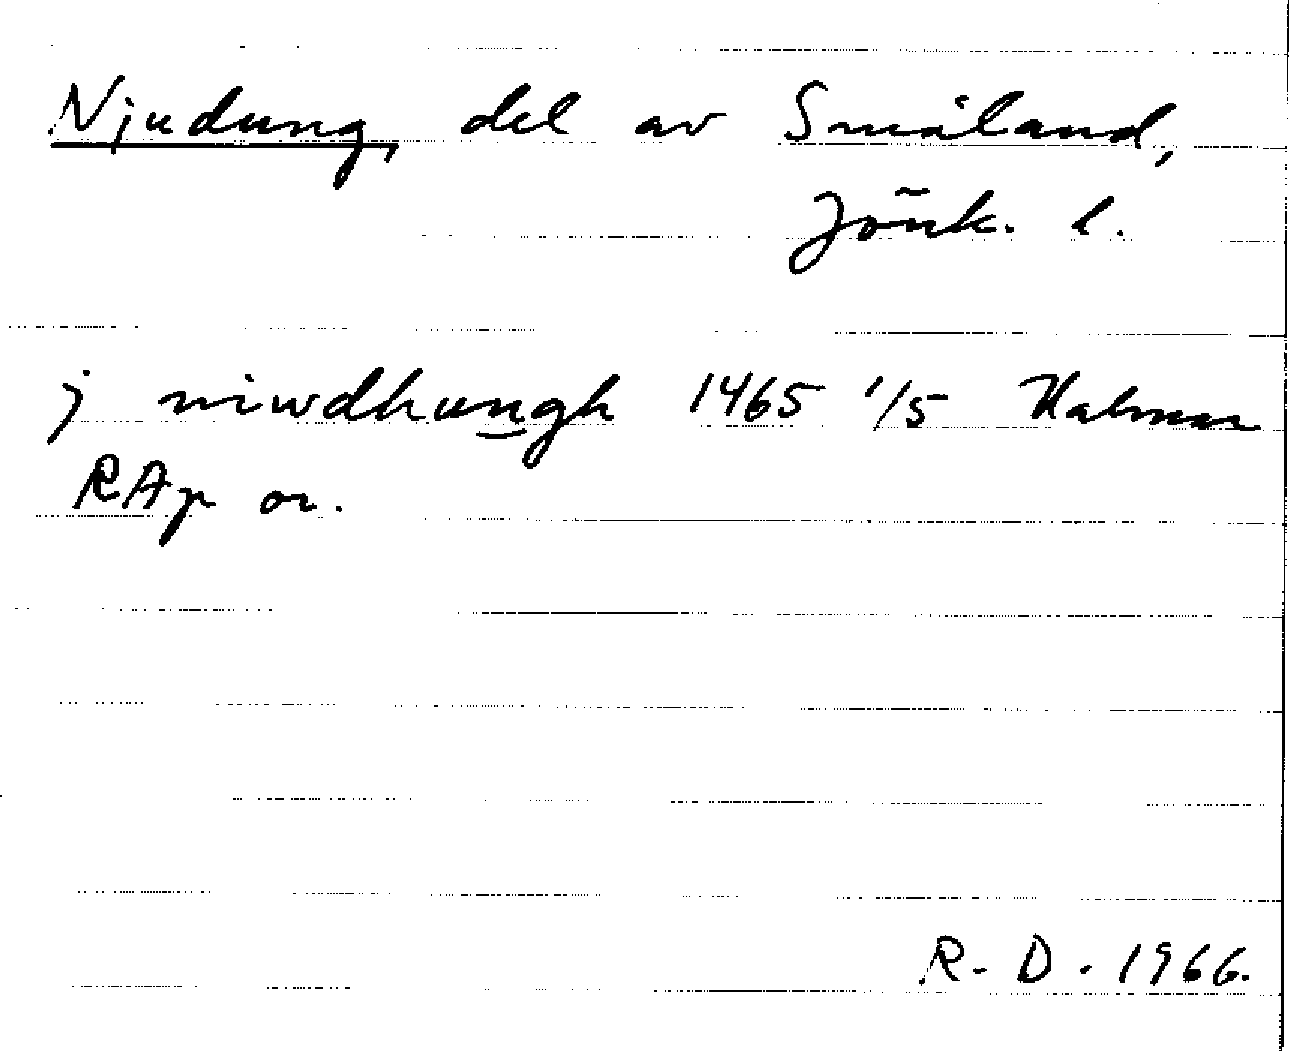 Njudung, del av Småland,
Jönk. l.
j niwdhungh 1465 1/5 Kalmar
RAp or.
R. D. 1966.